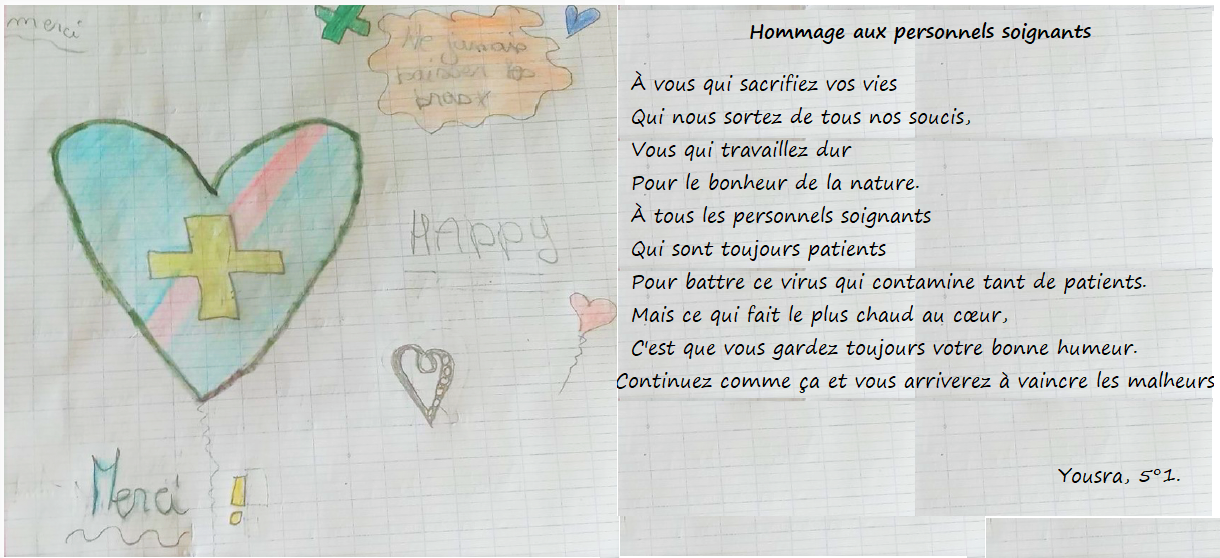 merci
Ne jamais
baisser les
bras
HAPPY
Merci !
Hommage aux personnels soignants
À vous qui sacrifiez vos vies
Qui nous sortez de tous nos soucis,
Vous qui travaillez dur
Pour le bonheur de la nature.
À tous les personnels soignants
Qui sont toujours patients
Pour battre ce virus qui contamine tant de patients.
Mais ce qui fait le plus chaud au cœur,
C'est que vous gardez toujours votre bonne humeur.
Continuez comme ça et vous arriverez à vaincre les malheurs
Yousra, 5°1.